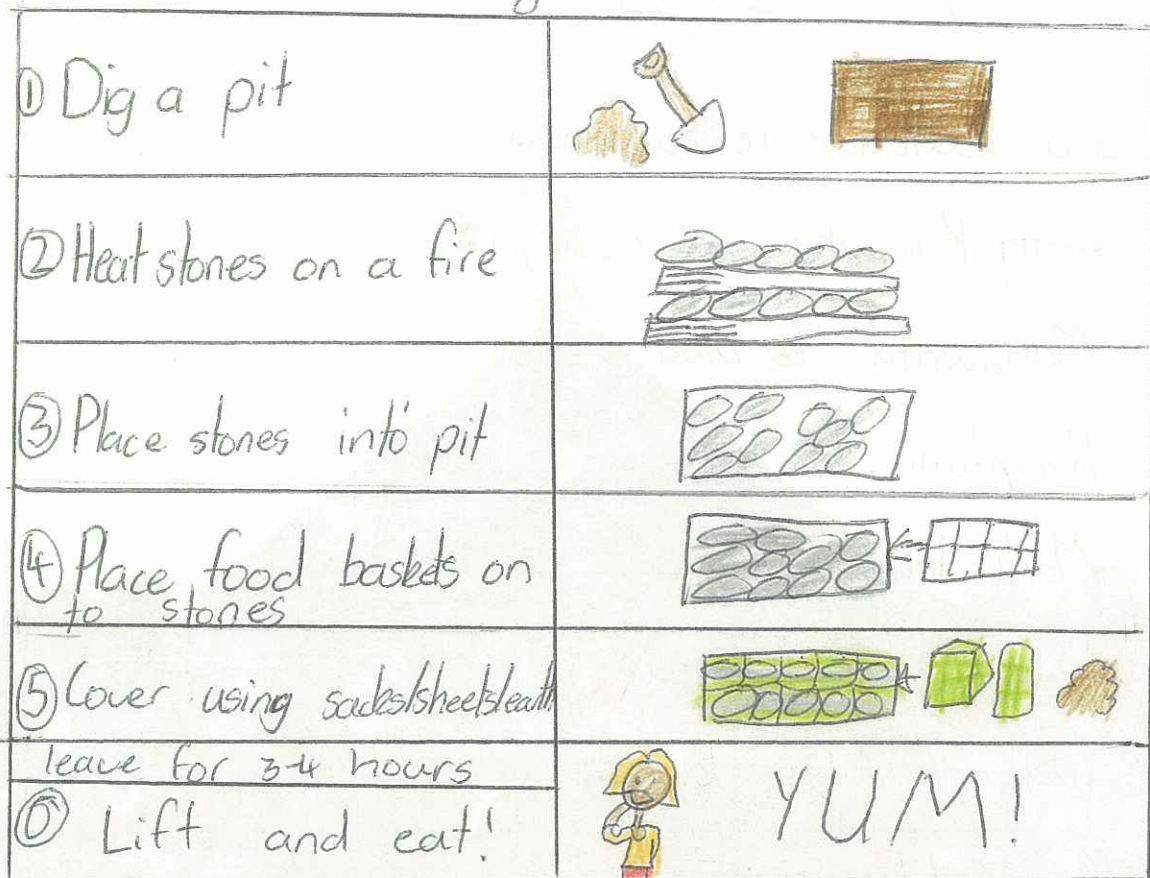 ① Dig a pit
② Heat stones on a fire
③ Place stones into pit
④ Place food baskets on
to stones
⑤ Cover using sacks/sheets/earth
leave for 3-4 hours
⑥ Lift and eat!
YUM!